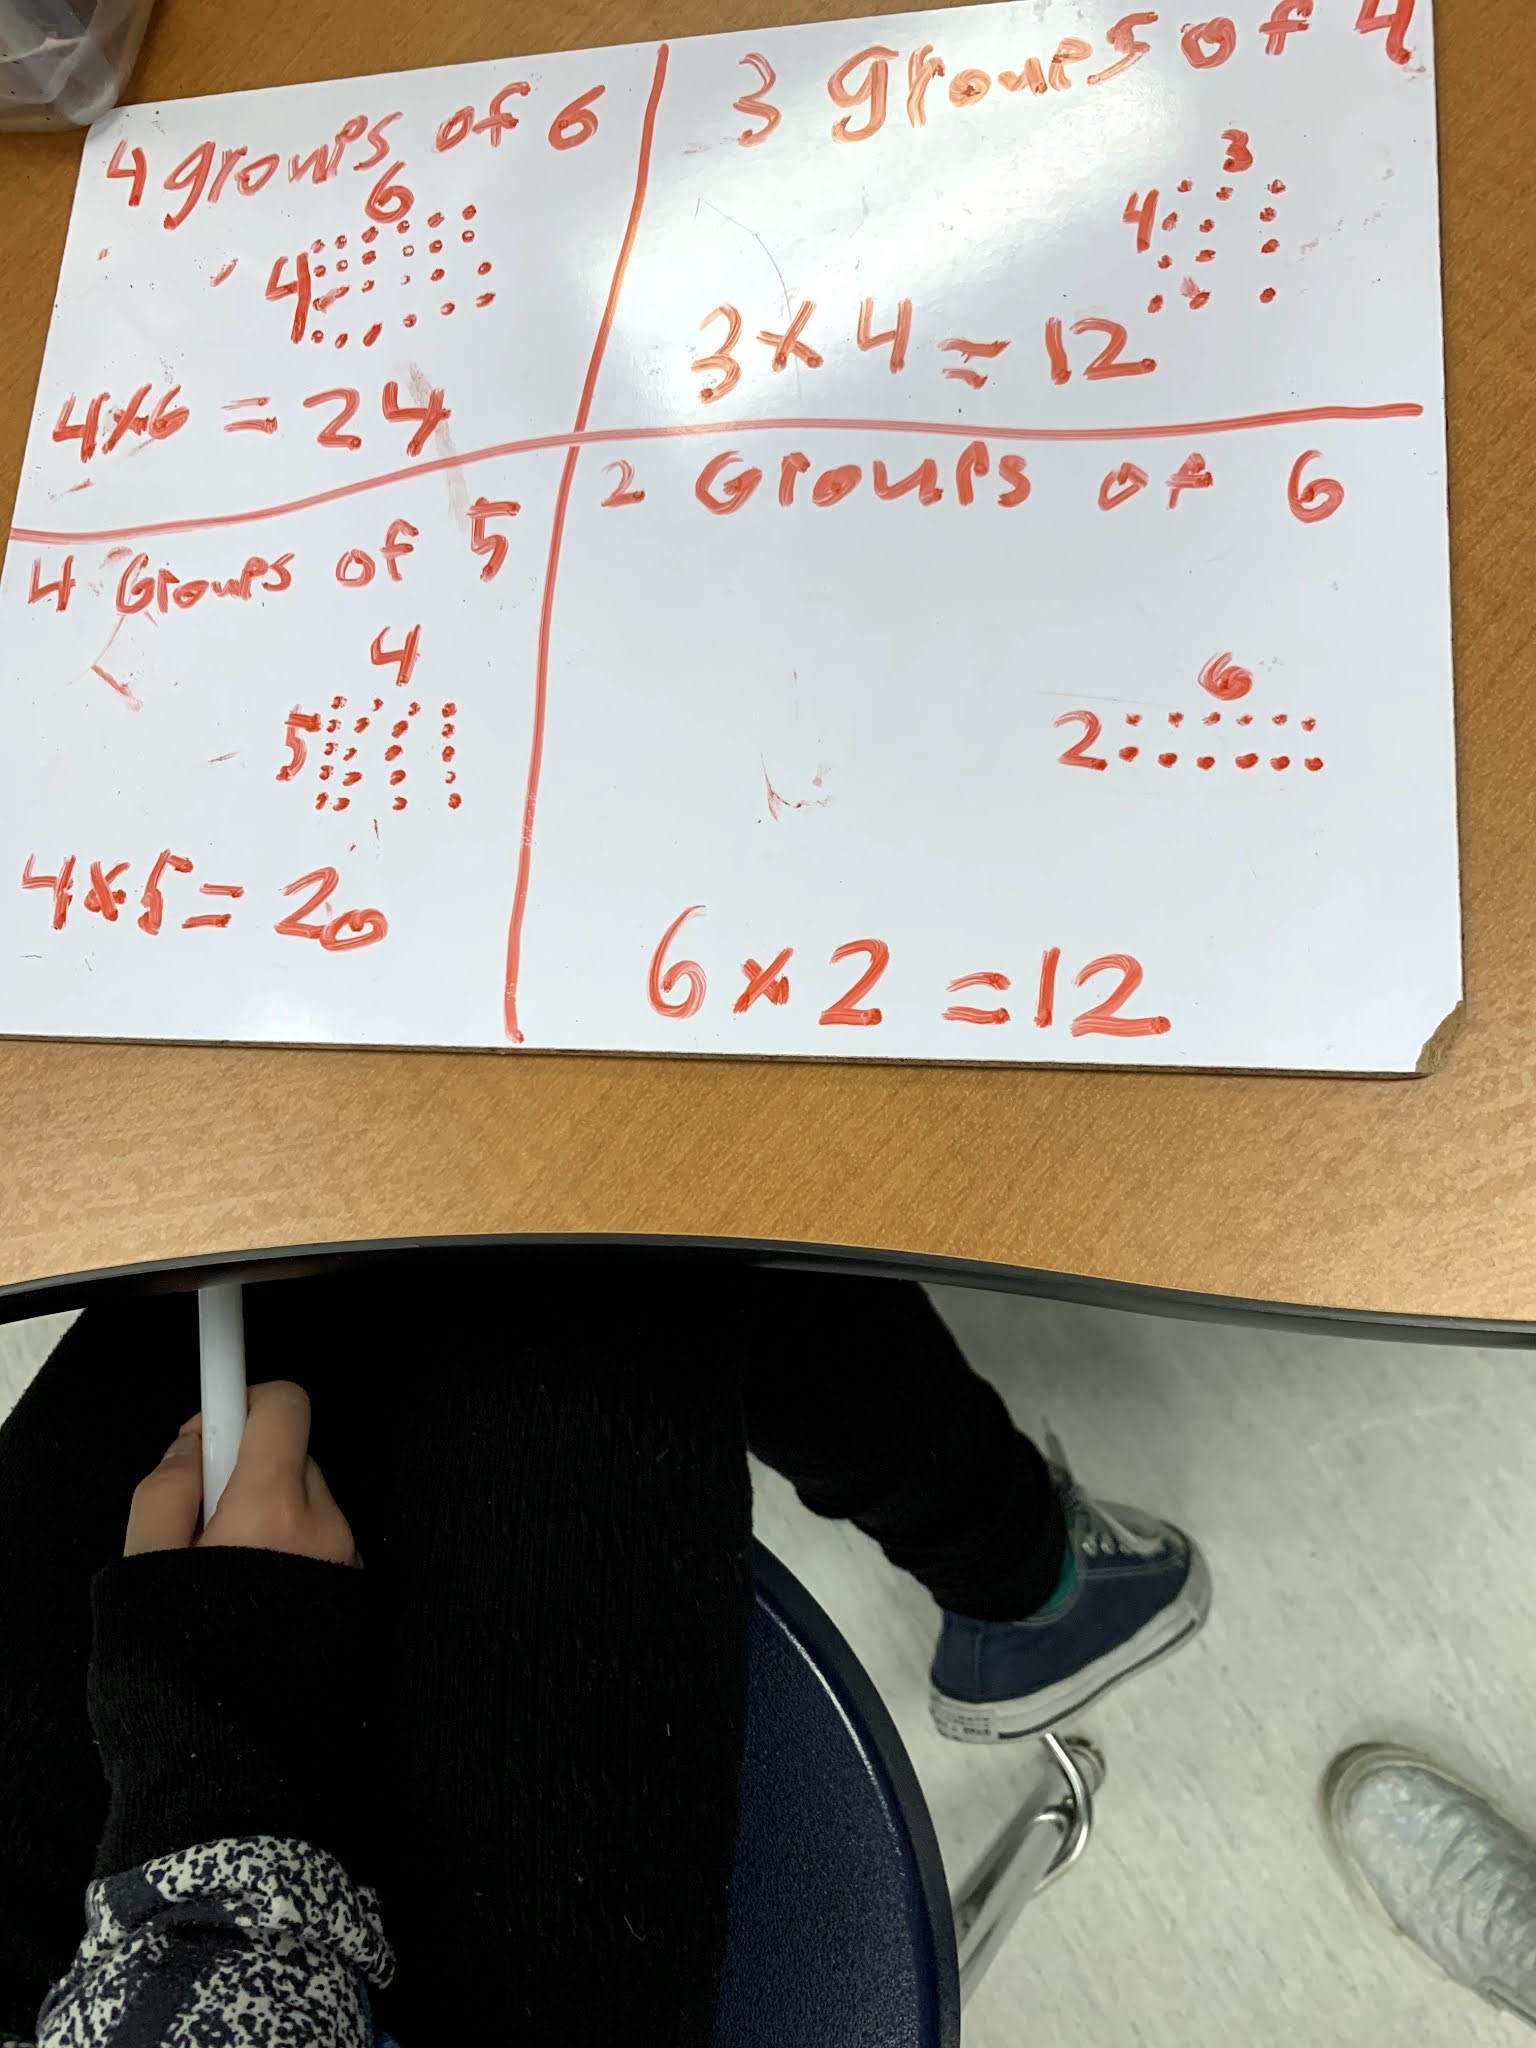 4 groups of 6
6
4
4x6 = 24
3 groups of 4
3
4
3x4=12
4 Groups of 5
4
5
4x5=20
2 Groups of 6
6
2
6x2=12